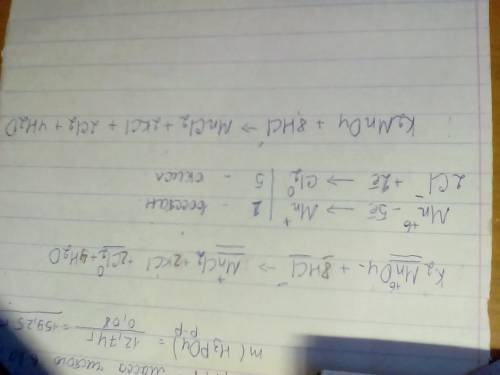 масса
m(H₃PO₄) р-р = 12,74г / 0,08 = 159,25
K₂Mn⁺⁶O₄ + 8HCl⁻ → Mn⁺Cl₂ + 2KCl + 2Cl₂⁰ + 4H₂O
Mn⁺⁶ - 5e → Mn⁺ | 2 - восстан
2Cl⁻ + 2e → Cl₂⁰ | 5 - окисл
K₂MnO₄ + 8HCl → MnCl₂ + 2KCl + 2Cl₂ + 4H₂O